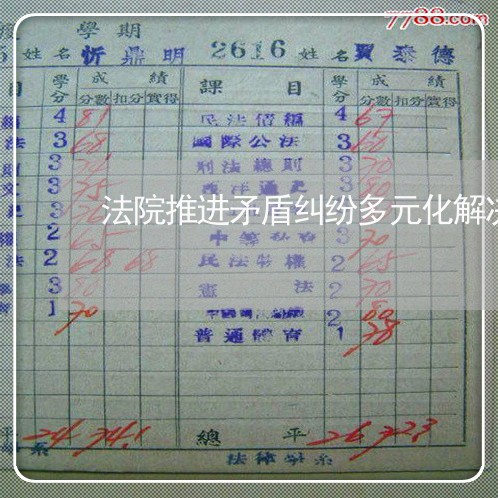 7788.com
學期
姓名 忻鼎明 2616 姓名 賈泰德
目 學分 成績 課目 學分 成績
分數 扣分 實得 分數 扣分 實得
4 81 民法債編 4 67
法 3 68 國際公法 3 60
3 刑法總則 3 70
3 75 西洋通史 3 80
法院推进矛盾纠纷多元化解决
2 65 中等私有 3 70
法 2 68 68 民法物權 2 65
3 80 憲法 2 70
1 70 2 80
普通體育 1 78
平 24 74.1 總平 26 72.3
系 法律學系